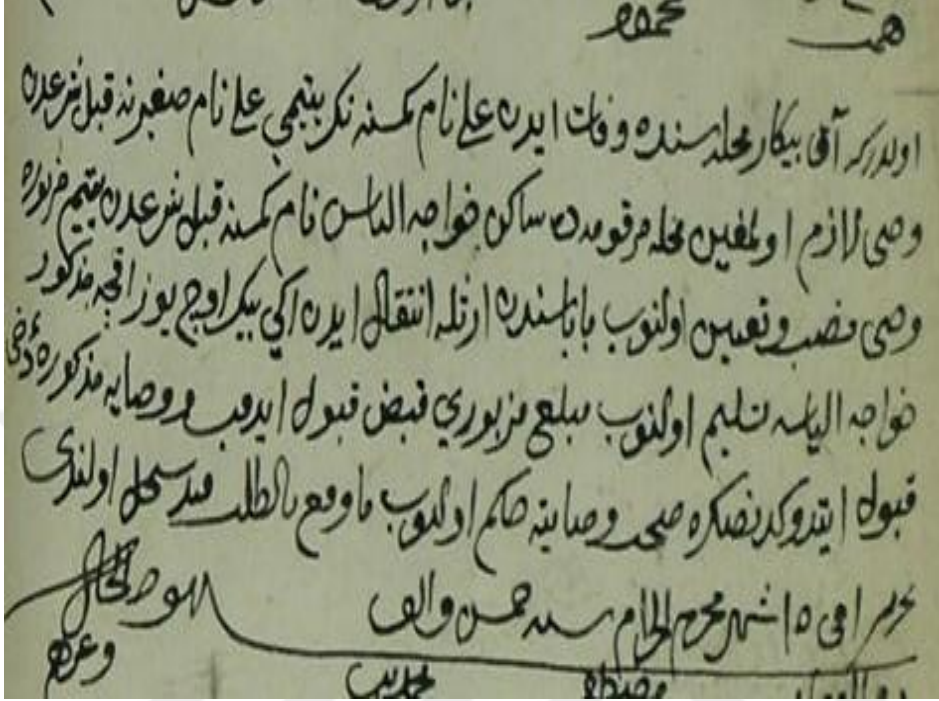 محمود
همت
اولدركه آق بيكار محله سنده وفات ايدن علي نام كمسنه نك يتيمي علي نام صغيرنه قبل شرعدن
وصي لازم اولمغين محله مرقومه ده ساكن خواجه الياس نام كمسنه قبل شرعدن يتيم مزبوره
وصي نصب وتعيين اولنوب باباسندن ارثله انتقال ايدن ايكي بيك اوچ يوز اقچه مذكور
خواجه الياسه تسليم اولنوب مبلغ مزبوري قبض قبول ايدوب ووصايه مذكوره دخي
قبول ايتدوكدنصكره صحت وصايته حكم اولنوب ماوقع بالطلب قيد سجل اولندي
تحريرا في ١٥ شهر محرم الحرام سنه خمس والف
شهود الحال
وغيرهم
مصطفى